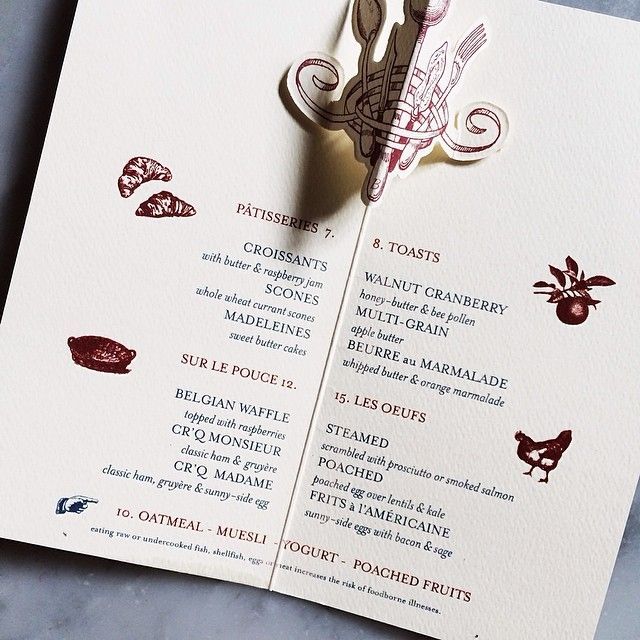 PÂTISSERIES 7.
CROISSANTS
with butter & raspberry jam
SCONES
whole wheat currant scones
MADELEINES
sweet butter cakes
SUR LE POUCE 12.
BELGIAN WAFFLE
topped with raspberries
CR'Q MONSIEUR
classic ham & gruyère
CR'Q MADAME
classic ham, gruyère & sunny-side egg
8. TOASTS
WALNUT CRANBERRY
honey-butter & bee pollen
MULTI-GRAIN
apple butter
BEURRE au MARMALADE
whipped butter & orange marmalade
15. LES OEUFS
STEAMED
scrambled with prosciutto or smoked salmon
POACHED
poached egg over lentils & kale
FRITS à l'AMÉRICAINE
sunny-side eggs with bacon & sage
10. OATMEAL - MUESLI - YOGURT - POACHED FRUITS
eating raw or undercooked fish, shellfish, eggs or meat increases the risk of foodborne illnesses.